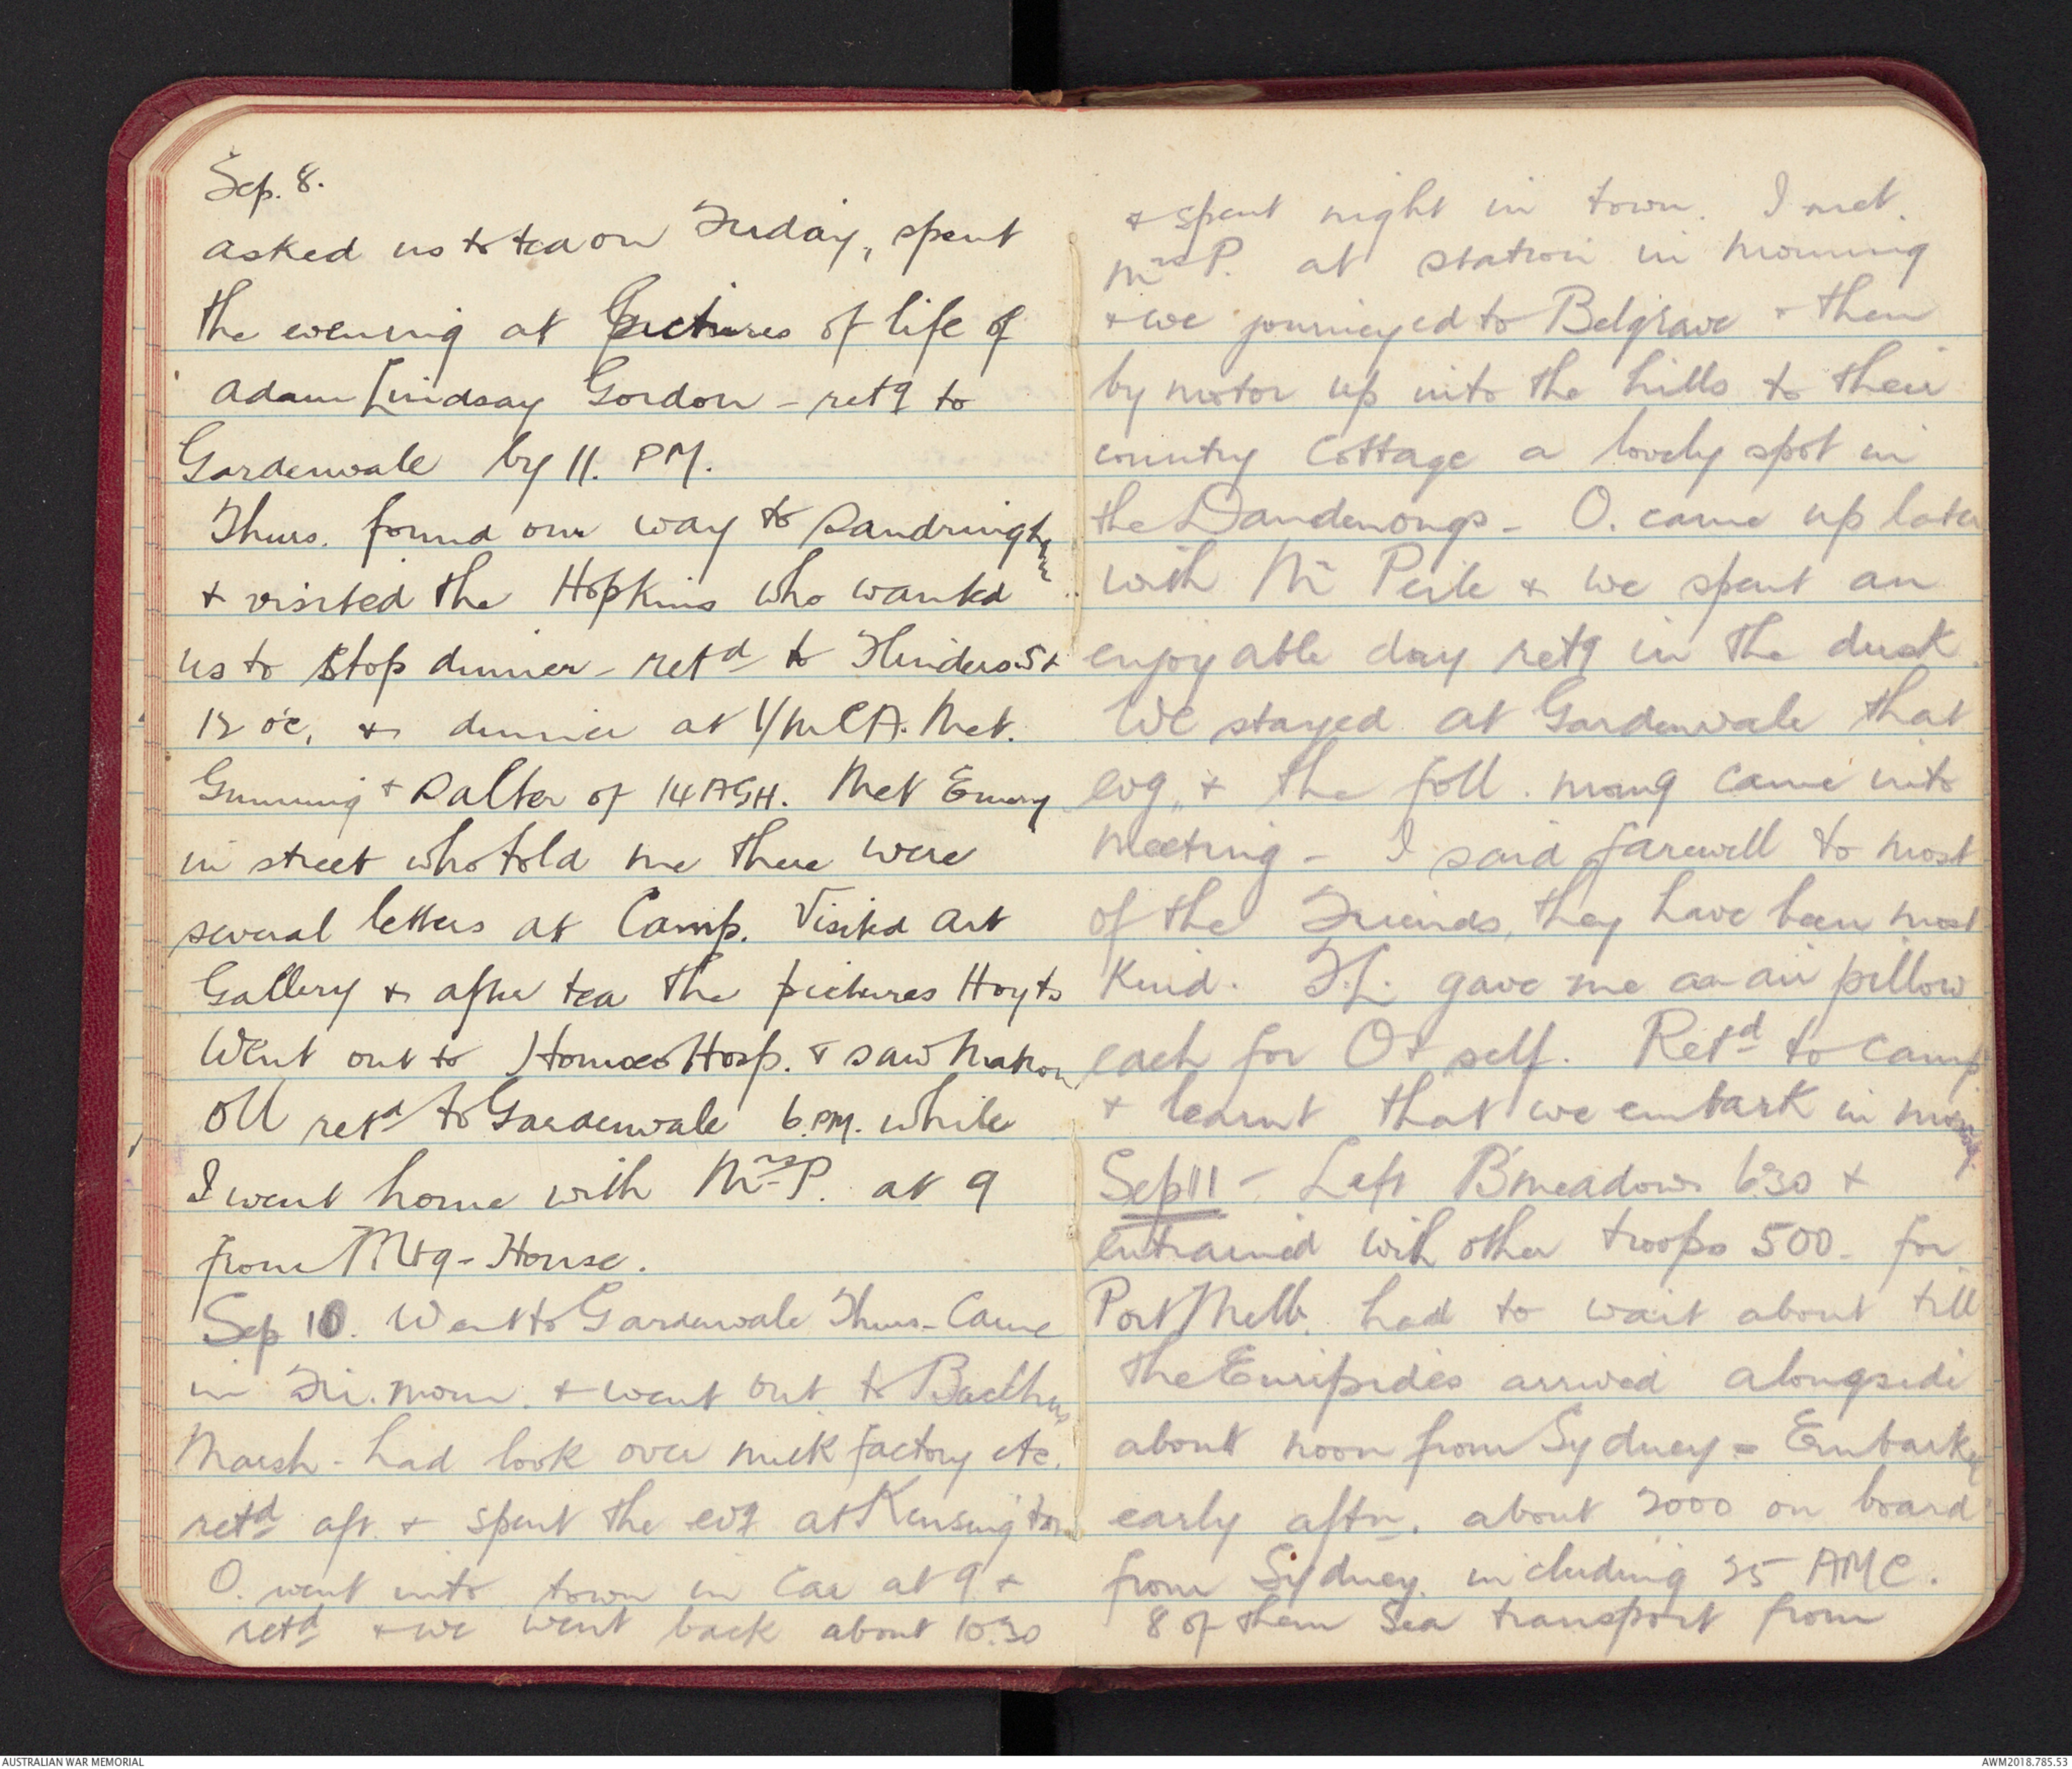 Sep. 8.
asked us to tea on Friday, spent
the evening at Pictures of life of
Adam Lindsay Gordon - retg to
Gardenvale by 11. PM.
Thurs. found our way to Sandringham
+ visited the Hopkins who wanted
us to stop dinner - retd to Flinders St
12 o'c, + dinner at YMCA. Met.
Gunning + Salter of 14 AGH. Met Emery
in street who told me there were
several letters at Camp. Visited Art
Gallery + after tea the pictures Hoyts
Went out to Homoeo Hosp. + saw Matron
Oll retd to Gardenvale 6. PM. while
I went home with Mrs P. at 9
from Mtg - House.
Sep 10. Went to Gardenvale Thurs - Came
in Fri. morn. + went out to Bacchus
Marsh - had look over milk factory etc.
retd aft. + spent the evg at Kensington
O. went into town in Car at 9 +
retd + we went back about 10.30
+ spent night in town. I met.
Mrs P. at station in morning
+ we journeyed to Belgrave + then
by motor up into the hills to their
country Cottage a lovely spot in
the Dandenongs - O. came up later
with Mr Peile + we spent an
enjoyable day retg in the dusk.
We stayed at Gardenvale that
evg, + the foll. mong came into
Meeting - I said farewell to most
of the Friends, they have been most
Kind. F.L. gave me an air pillow
each for O + self. Retd to camp
+ learnt that we embark in morng.
Sep 11 - Left B'meadows 6.30 +
entrained with other troops 500 - for
Port Melb. had to wait about till
the Euripides arrived alongside
about noon from Sydney - Embarked
early aftn. about 2000 on board
from Sydney. including 25 AMC.
8 of them Sea transport from
AUSTRALIAN WAR MEMORIAL
AWM2018.785.53